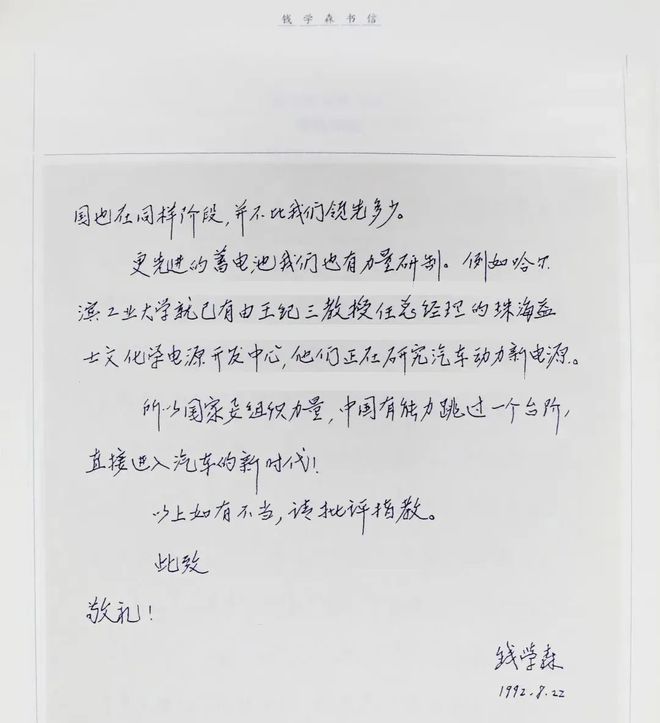 钱学森书信
国也在同样阶段，并不比我们领先多少。
更先进的蓄电池我们也有力量研制。例如哈尔
滨工业大学就已有由王纪三教授任总经理的珠海益
士文化学电源开发中心，他们正在研究汽车动力新电源。
所以国家要组织力量，中国有能力跳过一个台阶，
直接进入汽车的新时代！
以上如有不当，请批评指教。
此致
敬礼！
钱学森
1992.8.22